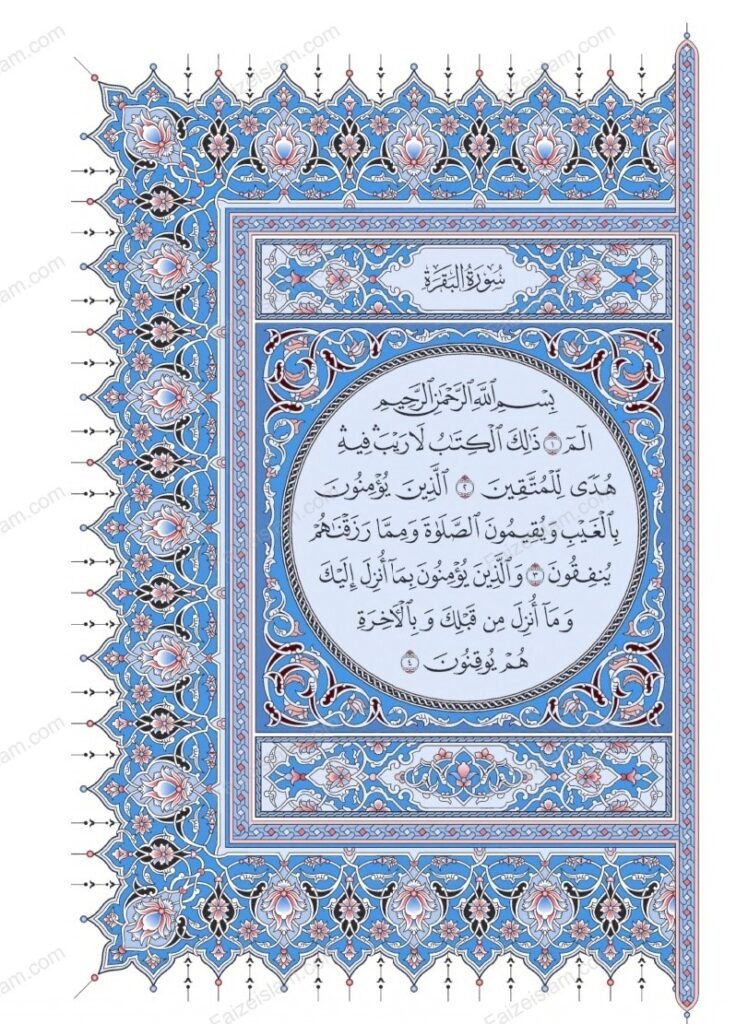 سُورَةُ الْبَقَرَةِ
بِسْمِ اللَّهِ الرَّحْمَٰنِ الرَّحِيمِ
الٓمٓ ۝١ ذَٰلِكَ الْكِتَٰبُ لَا رَيْبَ ۛ فِيهِ ۛ
هُدًى لِّلْمُتَّقِينَ ۝٢ الَّذِينَ يُؤْمِنُونَ
بِالْغَيْبِ وَيُقِيمُونَ الصَّلَوٰةَ وَمِمَّا رَزَقْنَٰهُمْ
يُنفِقُونَ ۝٣ وَالَّذِينَ يُؤْمِنُونَ بِمَآ أُنزِلَ إِلَيْكَ
وَمَآ أُنزِلَ مِن قَبْلِكَ وَبِالْأَخِرَةِ
هُمْ يُوقِنُونَ ۝٤
Faizeislam.com